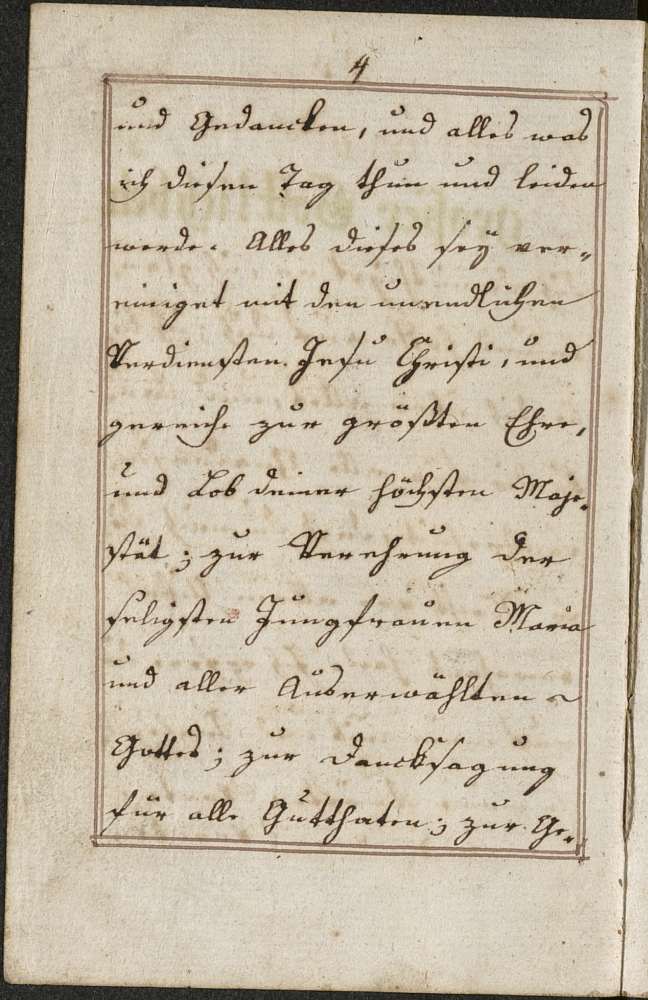 4
und Gedancken, und alles was
ich diesen Tag thun und leiden
werde. Alles dieses seÿ ver-
einiget mit den unendlichen
Verdiensten Jesu Christi, und
gereiche zur größten Ehre,
und Lob deiner höchsten Maje-
stät; zur Verehrung der
seligsten Jungfrauen Maria
und aller Auserwählten
Gottes; zur Dancksagung
für alle Gutthaten; zur Ge-